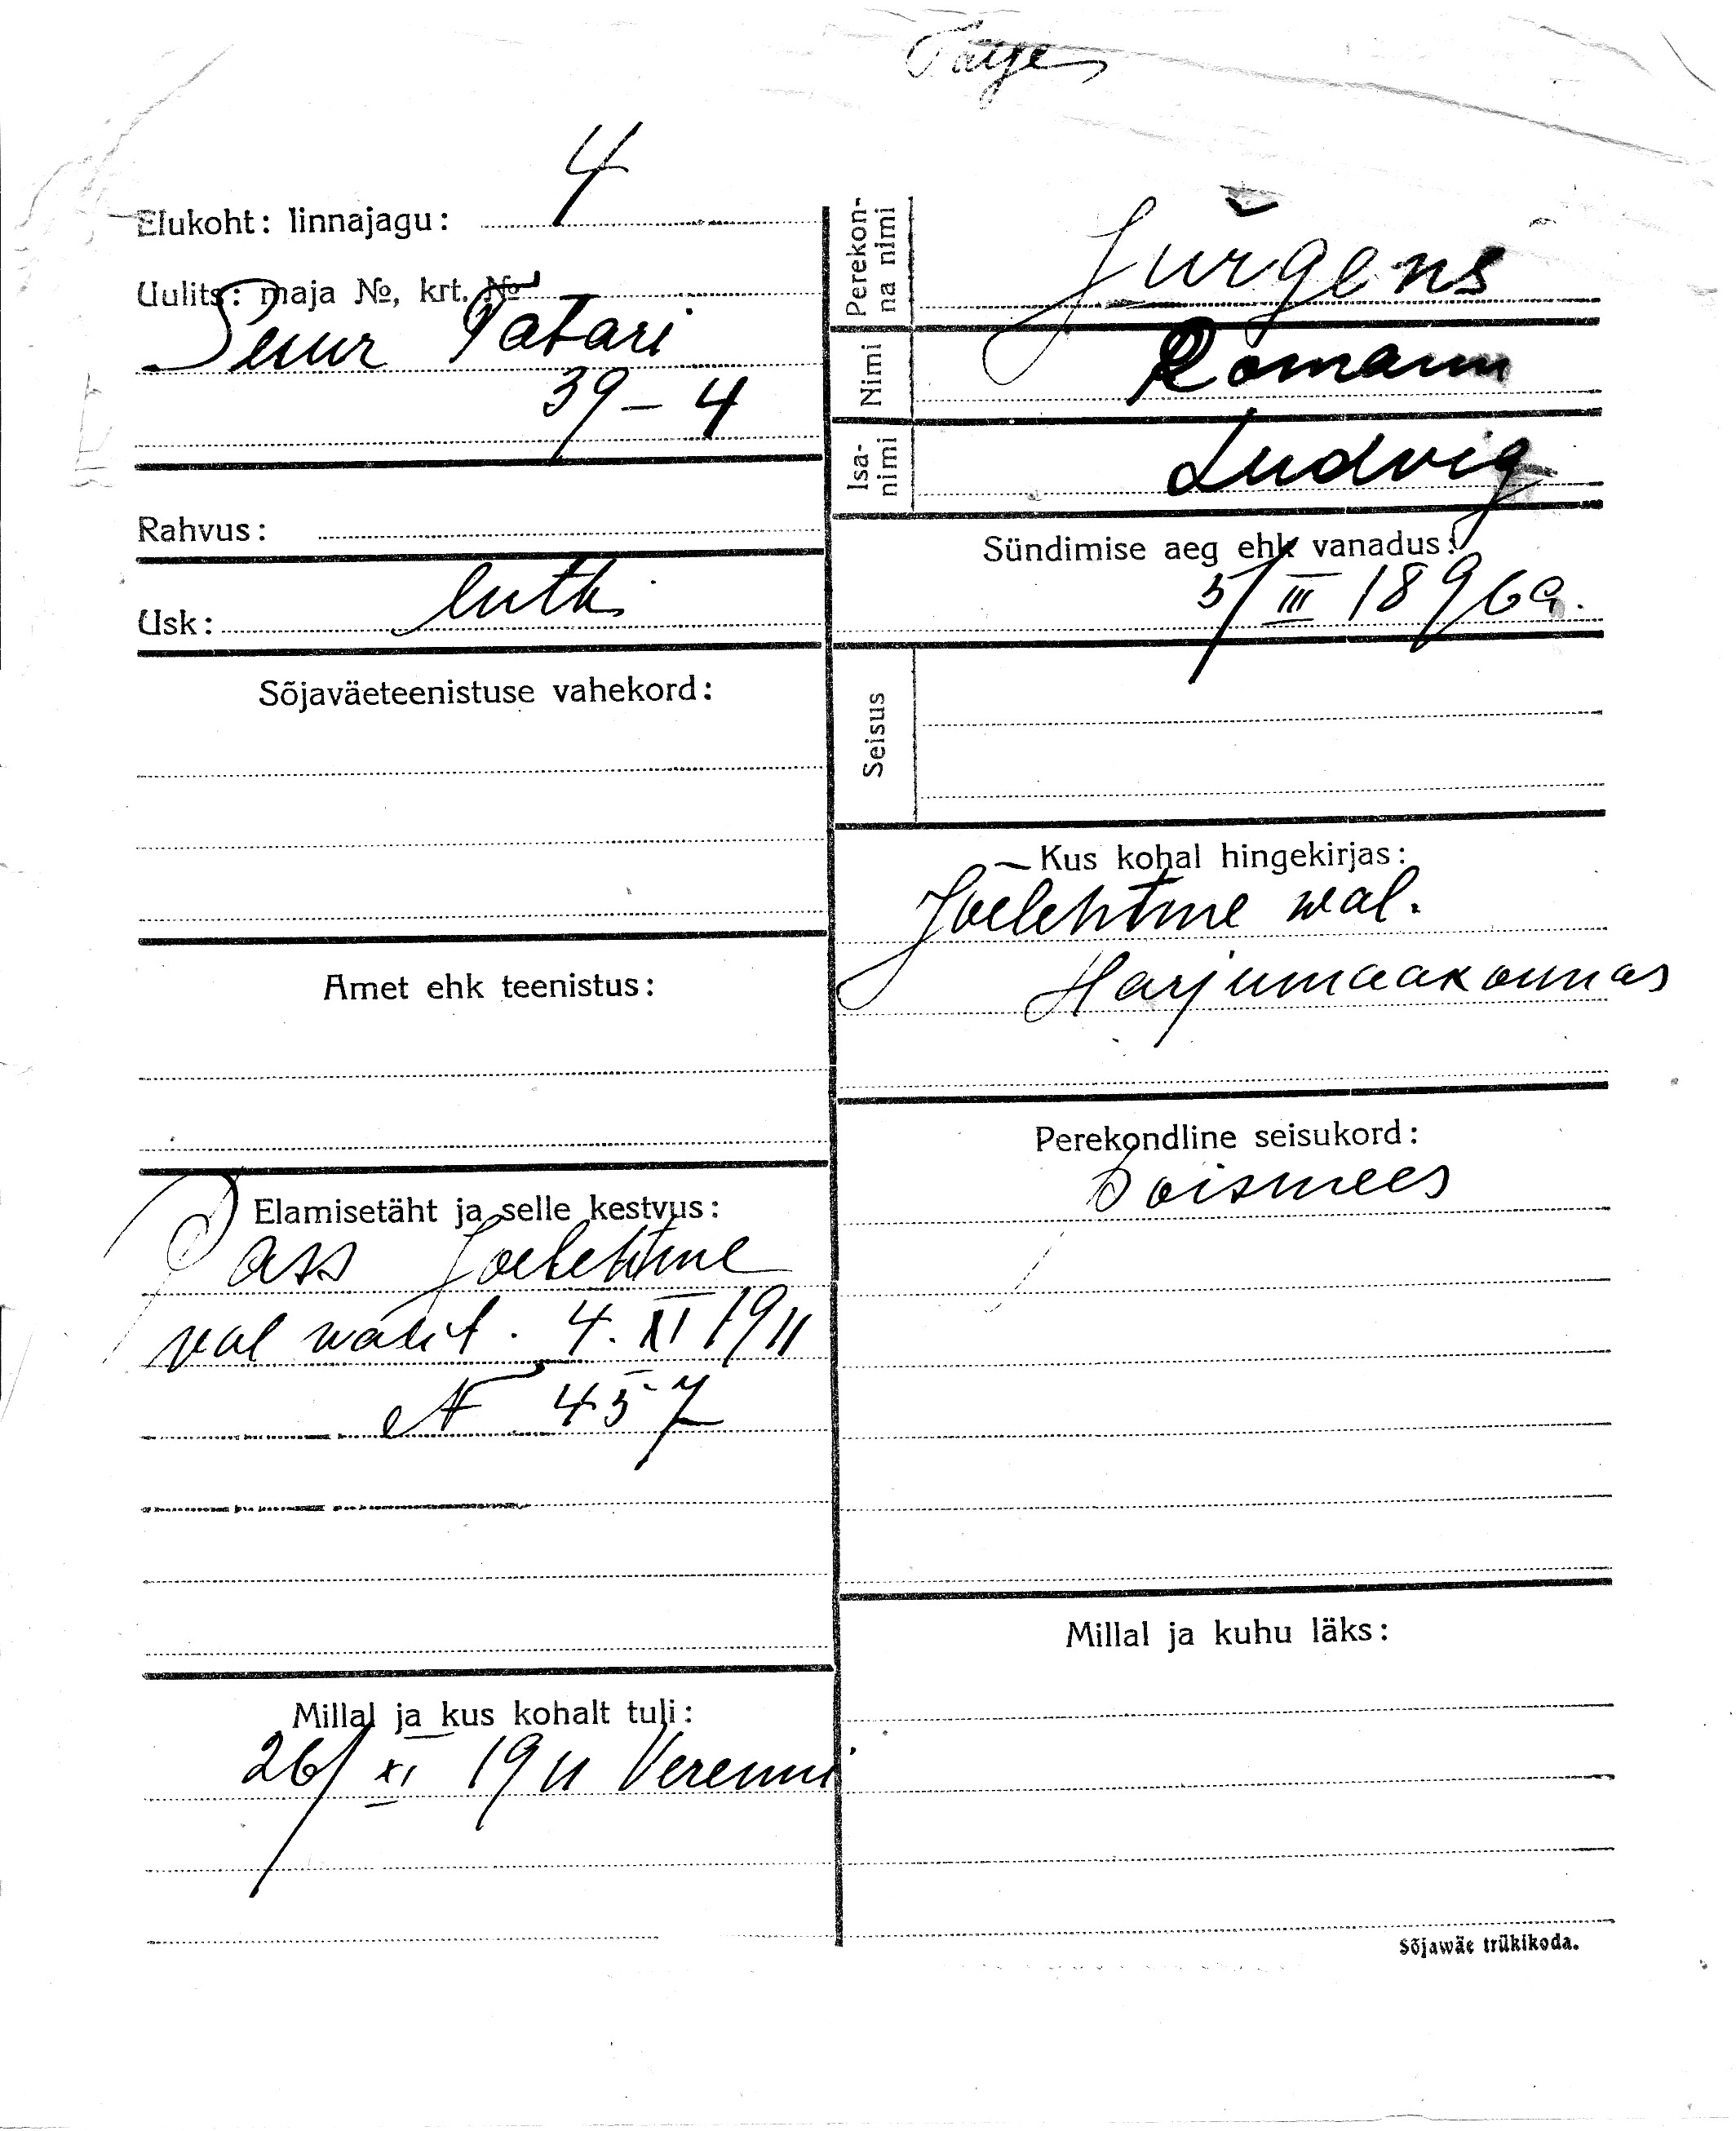 Elukoht: linnajagu: 4
Uulits: maja №, krt. №
Suur Tatari
39 – 4
Rahvus:
Usk: luth.
Sõjaväeteenistuse vahekord:
Amet ehk teenistus:
Elamisetäht ja selle kestvus:
Pass Joelehtme
val valit. 4. XI 1911
N 457
Millal ja kus kohalt tuli:
26/XI 1911 Verenni
Perekonna nimi Jürgens
Nimi Romann
Isanimi Ludvig
Sündimise aeg ehk vanadus:
5/III 1896 a.
Seisus
Kus kohal hingekirjas:
Joelehtme wal.
Harjumaakonnas
Perekondline seisukord:
Poismees
Millal ja kuhu läks:
Sõjawäe trükikoda.